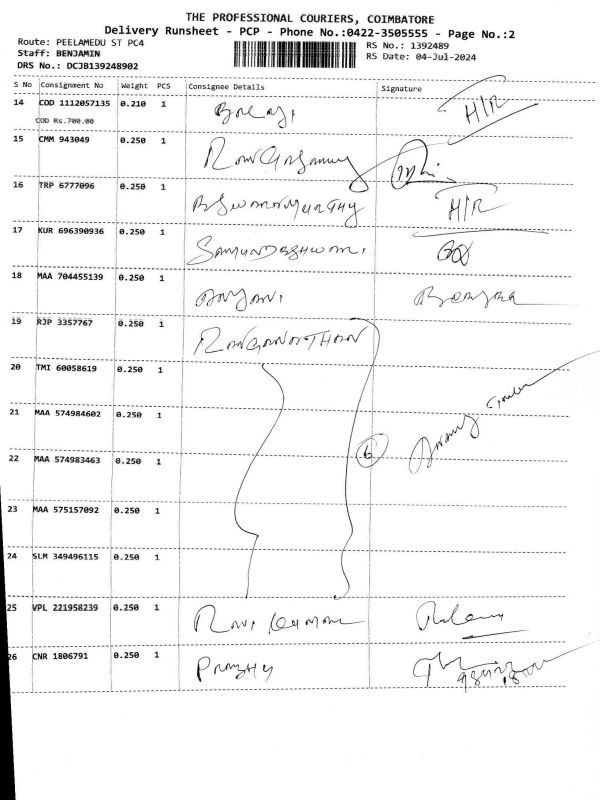 THE PROFESSIONAL COURIERS, COIMBATORE
Delivery Runsheet - PCP - Phone No.:0422-3505555 - Page No.:2
Route: PEELAMEDU ST PC4
RS No.: 1392489
Staff: BENJAMIN
RS Date: 04-Jul-2024
DRS No.: DCJB139248902
S No Consignment No Weight PCS Consignee Details Signature
14 COD 1112057135 0.210 1 Balaji H/R
COD Rs.700.00
15 CMM 943049 0.250 1
16 TRP 6777096 0.250 1 H/R
17 KUR 696390936 0.250 1
18 MAA 704455139 0.250 1
19 RJP 3357767 0.250 1 RANGANATHAN
20 TMI 60058619 0.250 1
21 MAA 574984602 0.250 1
22 MAA 574983463 0.250 1 6
23 MAA 575157092 0.250 1
24 SLM 349496115 0.250 1
25 VPL 221958239 0.250 1
26 CNR 1806791 0.250 1